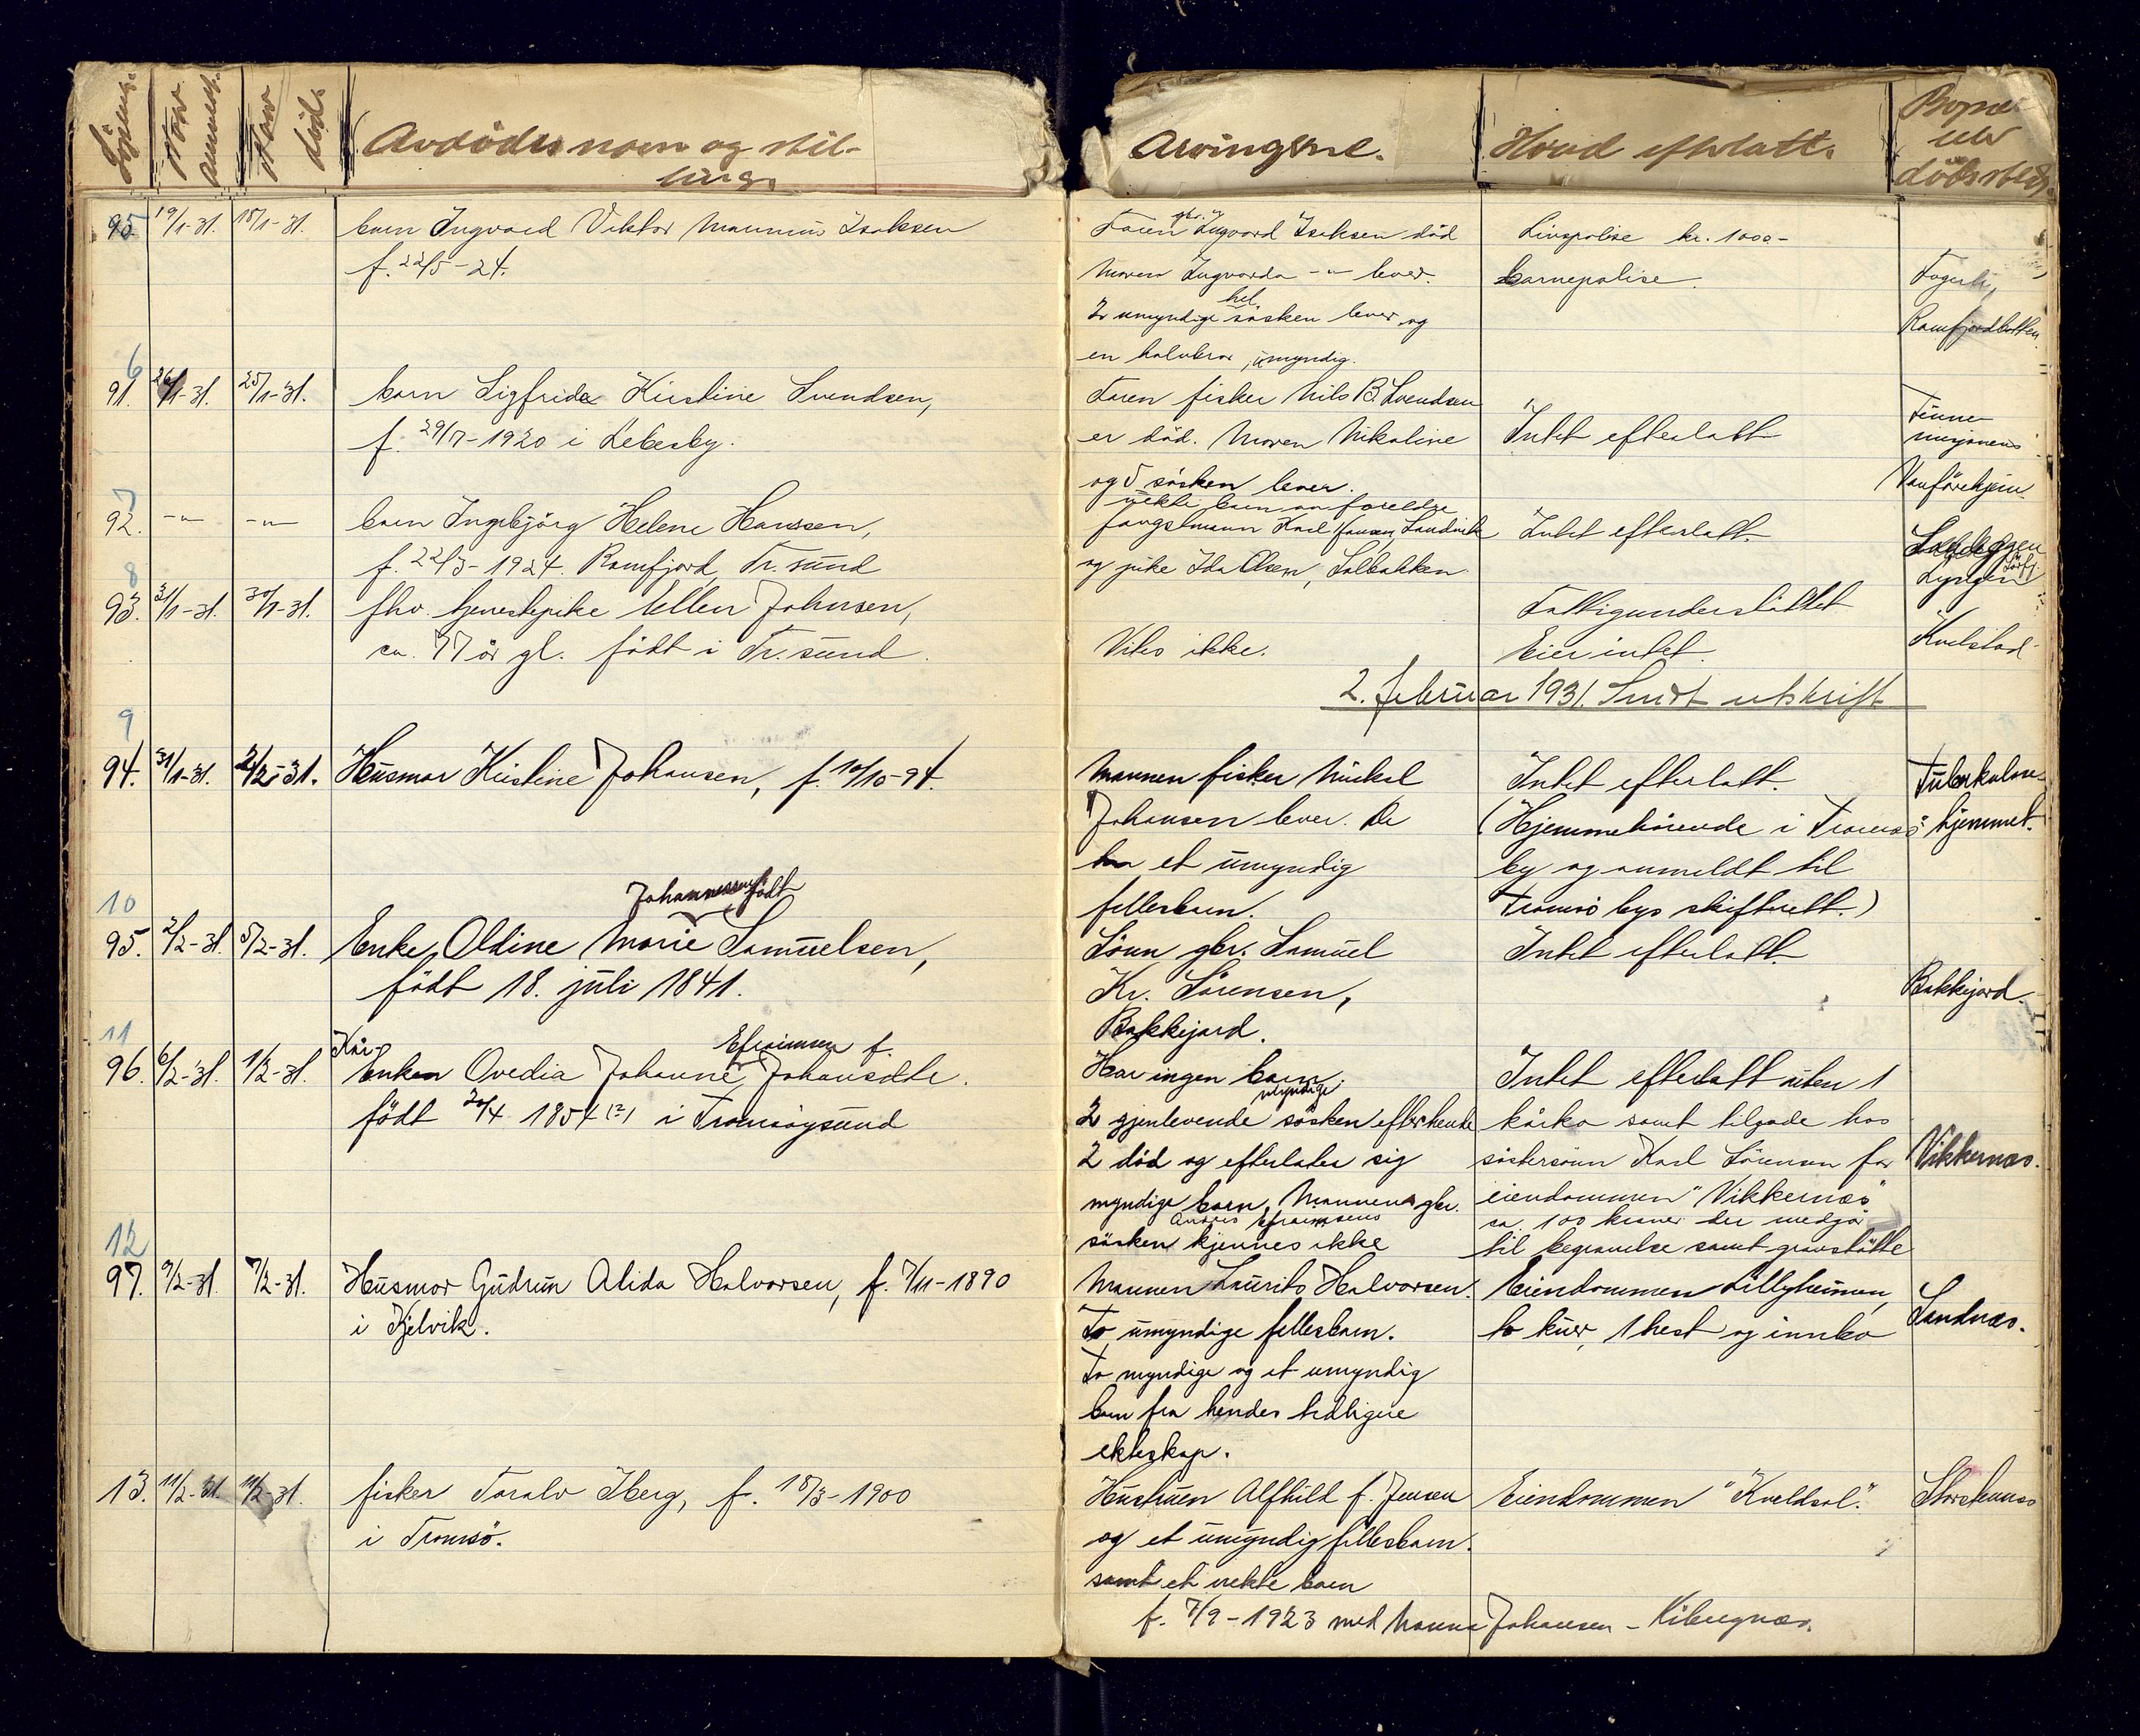 Når anmeldt.
Når død.
Avdødes navn og stil-
ling.
Arvingene.
Hvad efterlatt.
Bopæl
eller
dødssted.
95 19/1-31. 18/1-31. barn Ingvard Viktor Isaksen
f. 22/5-24.
Faren gbr. Ingvard Isaksen død
Moren Ingvarda -"- lever.
2 umyndige hel søsken lever og
en halvbror, umyndig.
Livspolise kr. 1000-
barnepolise.
Fagerli,
Ramfjordbotten.
6
91. 26/1-31. 25/1-31. barn Sigfride Kirstine Svendsen,
f. 29/7-1920 i Lebesby.
Faren fisker Nils B. Svendsen
er død. Moren Nikoline
og 5 søsken lever.
Intet efterlatt
Finne
misjonens
Vanførehjem.
7
92. -"- -"- barn Ingebjørg Helene Hanssen,
f. 22/3-1924. Ramfjord, Tr.sund
uekte barn av foreldre
fangstmann Karl Hansen, Sandvik
og pike Ida Olsen, Solbakken.
Intet efterlatt.
Lyngen
8
93. 31/1-31. 30/1-31. fhv. tjenestepike Ellen Johnsen,
ca. 77 år gl. født i Tr.sund.
Vites ikke.
Fattigunderstøttet
Eier intet.
2. februar 1931. Sendt utskrift
9
94. 31/1-31. 2/2-31. Husmor Kristine Johansen, f. 10/10-94.
Mannen fisker Nickal
Johansen lever. De
har et umyndig
fellesbarn.
Intet efterlatt.
(Hjemmehørende i Tromsø
by og anmeldt til
Tromsø bys skifterett.)
Tuberkulose-
hjemmet.
10
95. 2/2-31. 5/2-31. Enke Oldine Marie Johannessen født Samuelsen,
født 18. juli 1841.
Sønn gbr. Samuel
Kr. Sørensen,
Bakkejord.
Intet efterlatt.
Bakkejord.
11
96. 6/2-31. 1/2-31. Kår-
Enken Ovedia Johanne Efraimsen f. Johansdtr.
født 20/4 1854 (?) i Tromsøysund
Har ingen barn.
2 gjenlevende myndige søsken efter hende
2 død og efterlater sig
myndige barn. Mannens gbr.
Anders Efraimsens
søsken kjennes ikke
Intet efterlatt uten 1
kårko samt tilgode hos
søstersønn Karl Sørensen for
eiendommen "Vikkernæs"
ca. 100 kroner der medgår
til begravelse samt gravstøtte
Vikkernæs.
12
97. 9/2-31. 7/2-31. Husmor Gudrun Alida Halvorsen, f. 7/11-1890
i Kjelvik.
Mannen Laurits Halvorsen.
To umyndige fellesbarn.
To myndige og et umyndig
barn fra hendes tidligere
ekteskap.
Eiendommen Lillyheimen,
to kuer, 1 hest og innbo
Sandnæs.
13. 11/2-31. 11/2-31. fisker Toralv Iberg, f. 18/3-1900
i Tromsø.
Hustruen Alfhild f. Jensen
og et umyndig fellesbarn.
samt et uekte barn
f. 7/9-1923 med Nanna Johansen - Kibergnæs.
Eiendommen "Kveldsol".
Storstennes